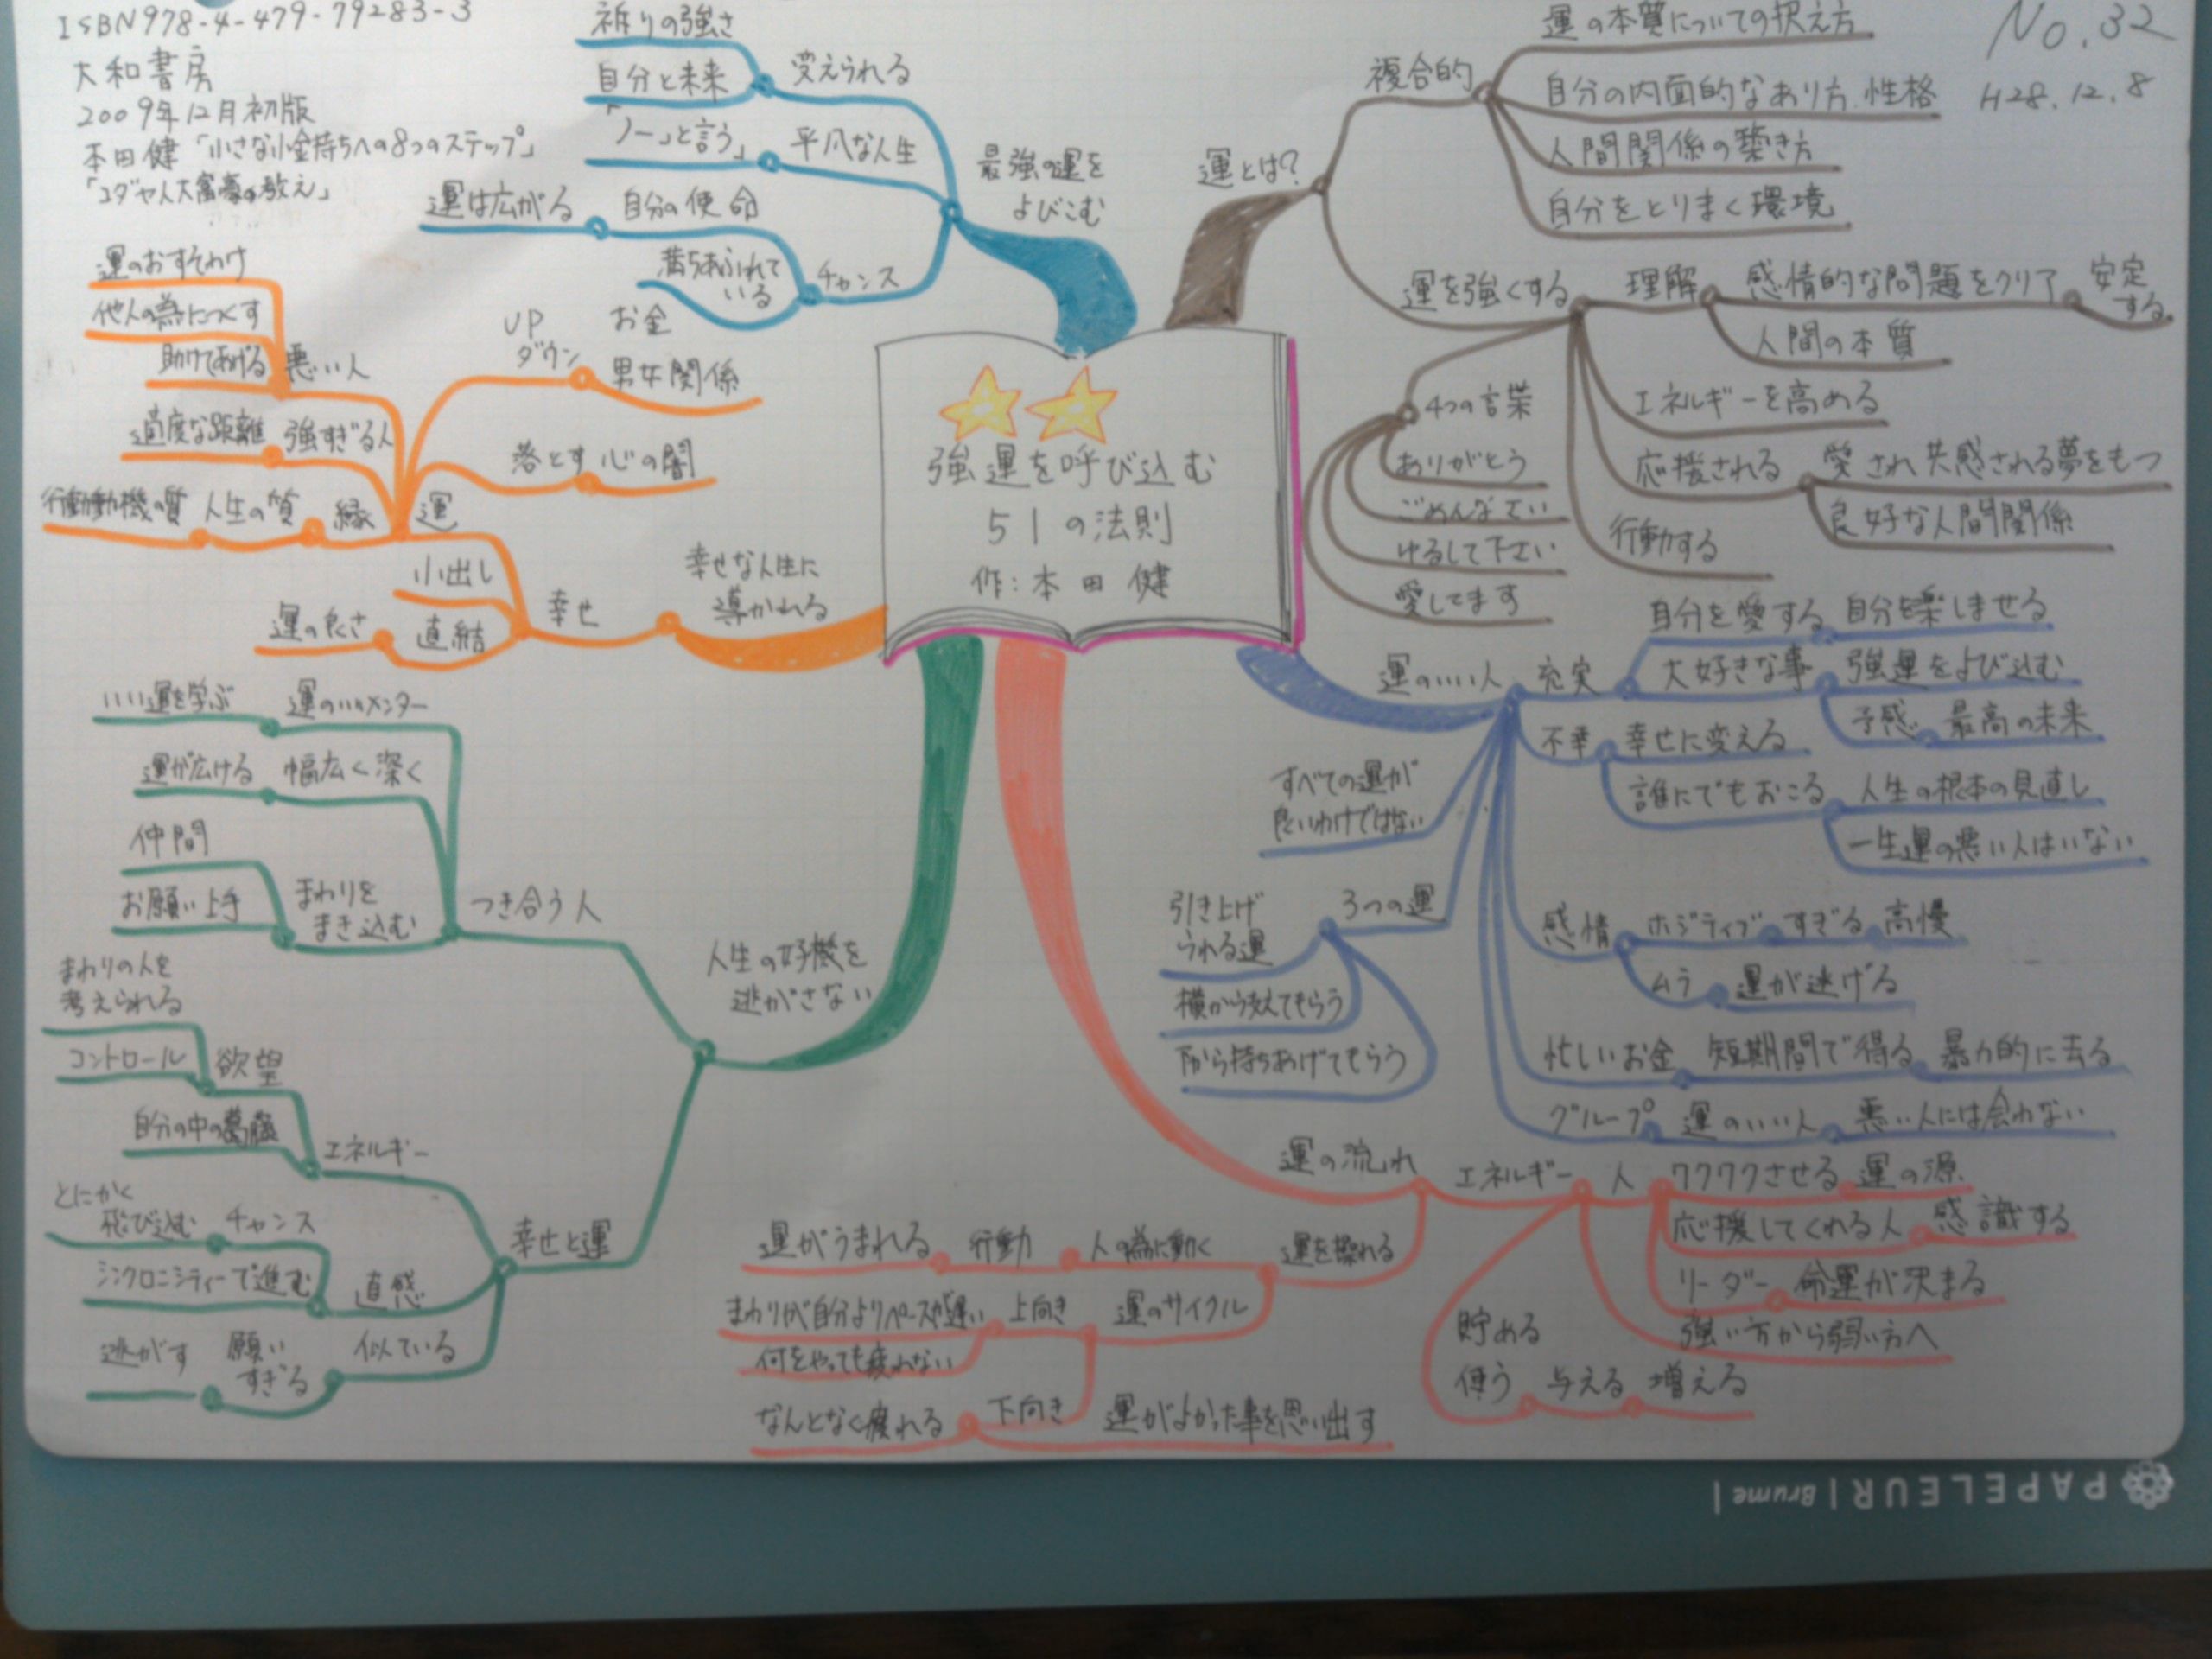 ISBN978-4-479-79283-3
大和書房
2009年12月初版
本田健「小さな小金持ちへの8つのステップ」
「ユダヤ人大富豪の教え」
No.32
H28.12.8
強運を呼び込む
51の法則
作:本田健
運とは?
複合的
運の本質についての捉え方
自分の内面的なあり方、性格
人間関係の築き方
自分をとりまく環境
運を強くする
理解
感情的な問題をクリア
安定
する。
人間の本質
エネルギーを高める
応援される
愛され共感される夢をもつ
良好な人間関係
行動する
4つの言葉
ありがとう
ごめんなさい
ゆるして下さい
愛してます
運のいい人
充実
自分を愛する
自分を楽しませる
大好きな事
強運をよび込む
予感
最高の未来
不幸
幸せに変える
誰にでもおこる
人生の根本の見直し
一生運の悪い人はいない
感情
ポジティブ
すぎる
高慢
ムラ
運が逃げる
忙しいお金
短期間で得る
暴力的に去る
グループ
運のいい人
悪い人には会わない
3つの運
引き上げ
られる運
横から支えてもらう
下から持ちあげてもらう
すべての運が
良いわけではない
運の流れ
エネルギー
人
ワクワクさせる
運の源
応援してくれる人
感識する
リーダー
命運が決まる
強い方から弱い方へ
貯める
使う
与える
増える
運を操れる
人の為に動く
行動
運がうまれる
運のサイクル
上向き
まわりが自分よりペースが遅い
何をやっても疲れない
下向き
なんとなく疲れる
運がよかった事を思い出す
人生の好機を
逃がさない
つき合う人
運のいいメンター
いい運を学ぶ
幅広く深く
運が広げる
まわりを
まき込む
仲間
お願い上手
幸せと運
エネルギー
欲望
まわりの人を
考えられる
コントロール
自分の中の葛藤
直感
チャンス
とにかく
飛び込む
シンクロニシティーで進む
似ている
願い
すぎる
逃がす
幸せな人生に
導かれる
幸せ
小出し
直結
運の良さ
運
UP
ダウン
お金
男女関係
落とす
心の闇
悪い人
運のおすそわけ
他人の為につくす
助けてあげる
強すぎる人
適度な距離
縁
人生の質
行動動機の質
最強の運を
よびこむ
変えられる
祈りの強さ
自分と未来
平凡な人生
「ノー」と言う」
チャンス
自分の使命
運は広がる
満ちあふれて
いる
PAPELEUR | Brume |